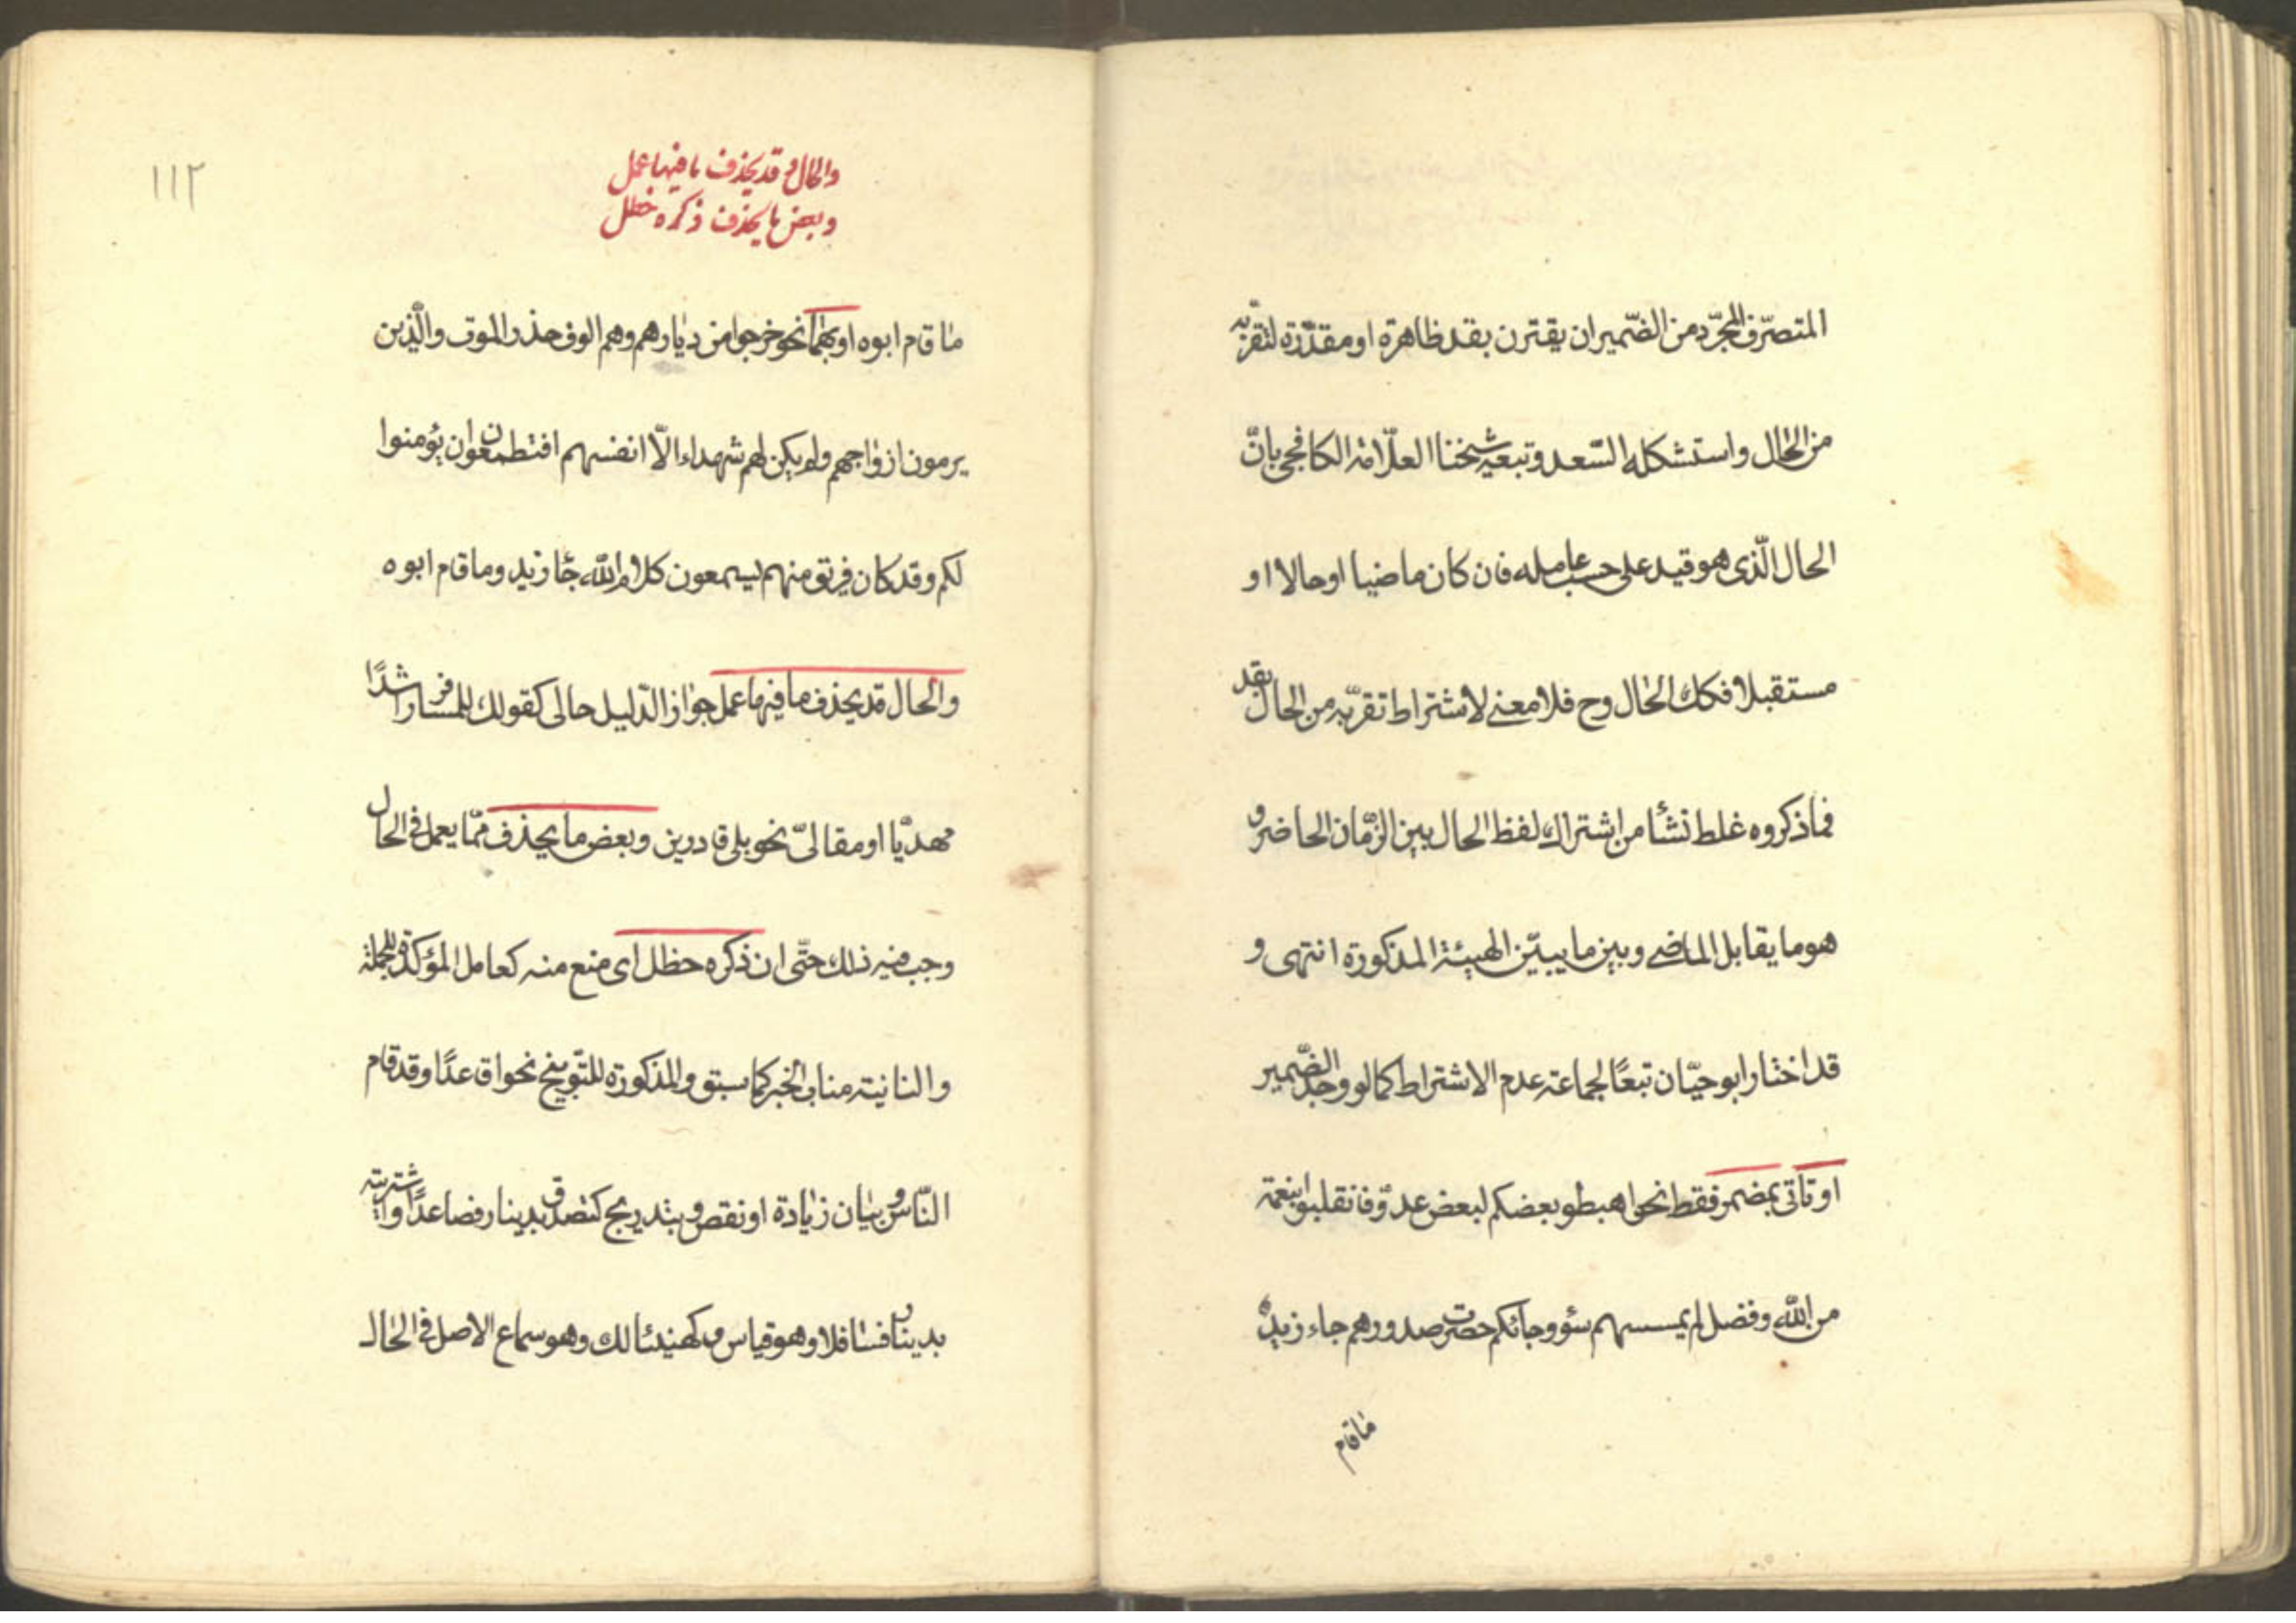 المتصرّف المجرّد من الضّمير ان يقترن بقد ظاهرة او مقدّرة لتقرّبه
من الحال واستشكله السّعد وتبعه شيخنا العلّامة الكافجى بانّ
الحال الّذى هو قيد على حسب عامله فان كان ماضيا او حالا او
مستقبلا فكك الحال وح فلا معنى لاشتراط تقرّبه من الحال بقد
فما ذكروه غلط نشأ من اشتراك لفظ الحال بين الزّمان الحاضر و
هو ما يقابل الماضى وبين ما يبيّن الهيئة المذكورة انتهى و
قد اختار ابو حيّان تبعًا لجماعة عدم الاشتراط كما لو وجد الضّمير
او تاتى بمضمر فقط نحو اهبطو بعضكم لبعض عدوّ فانقلبوا بنعمة
من الله وفضل لم يمسسهم سؤ وجائكم حصرت صدورهم جاء زيد
ما قام
١١٢
والحال قد يحذف ما فيها عمل
وبعض ما يحذف ذكره حظل
ما قام ابوه او بهما نحو خرجوا من ديارهم وهم الوف حذر الموت والّذين
يرمون ازواجهم ولم يكن لهم شهداء الّا انفسهم افتطمعون ان يؤمنوا
لكم وقد كان فريق منهم يسمعون كلام الله جا زيد وما قام ابوه
والحال قد يحذف ما فيها عمل جوازا لدّليل حالى كقولك للمسافر راشدًا
مهديّا او مقالىّ نحو بلى قادرين وبعض ما يحذف ممّا يعمل فى الحال
وجب فيه ذلك حتّى ان ذكره حظل اى منع منه كعامل المؤكدة للجملة
والنانية مناب الخبر كما سبق والمذكورة للتّوبيخ نحو اقاعدًا وقد قام
النّاس وبيان زيادة او نقص وبتدريج كتصدّق بدينار فصاعدًا واشتريته
بدينار فسافلا وهو قياس وكهنيئا لك وهو سماع الاصل فى الحال